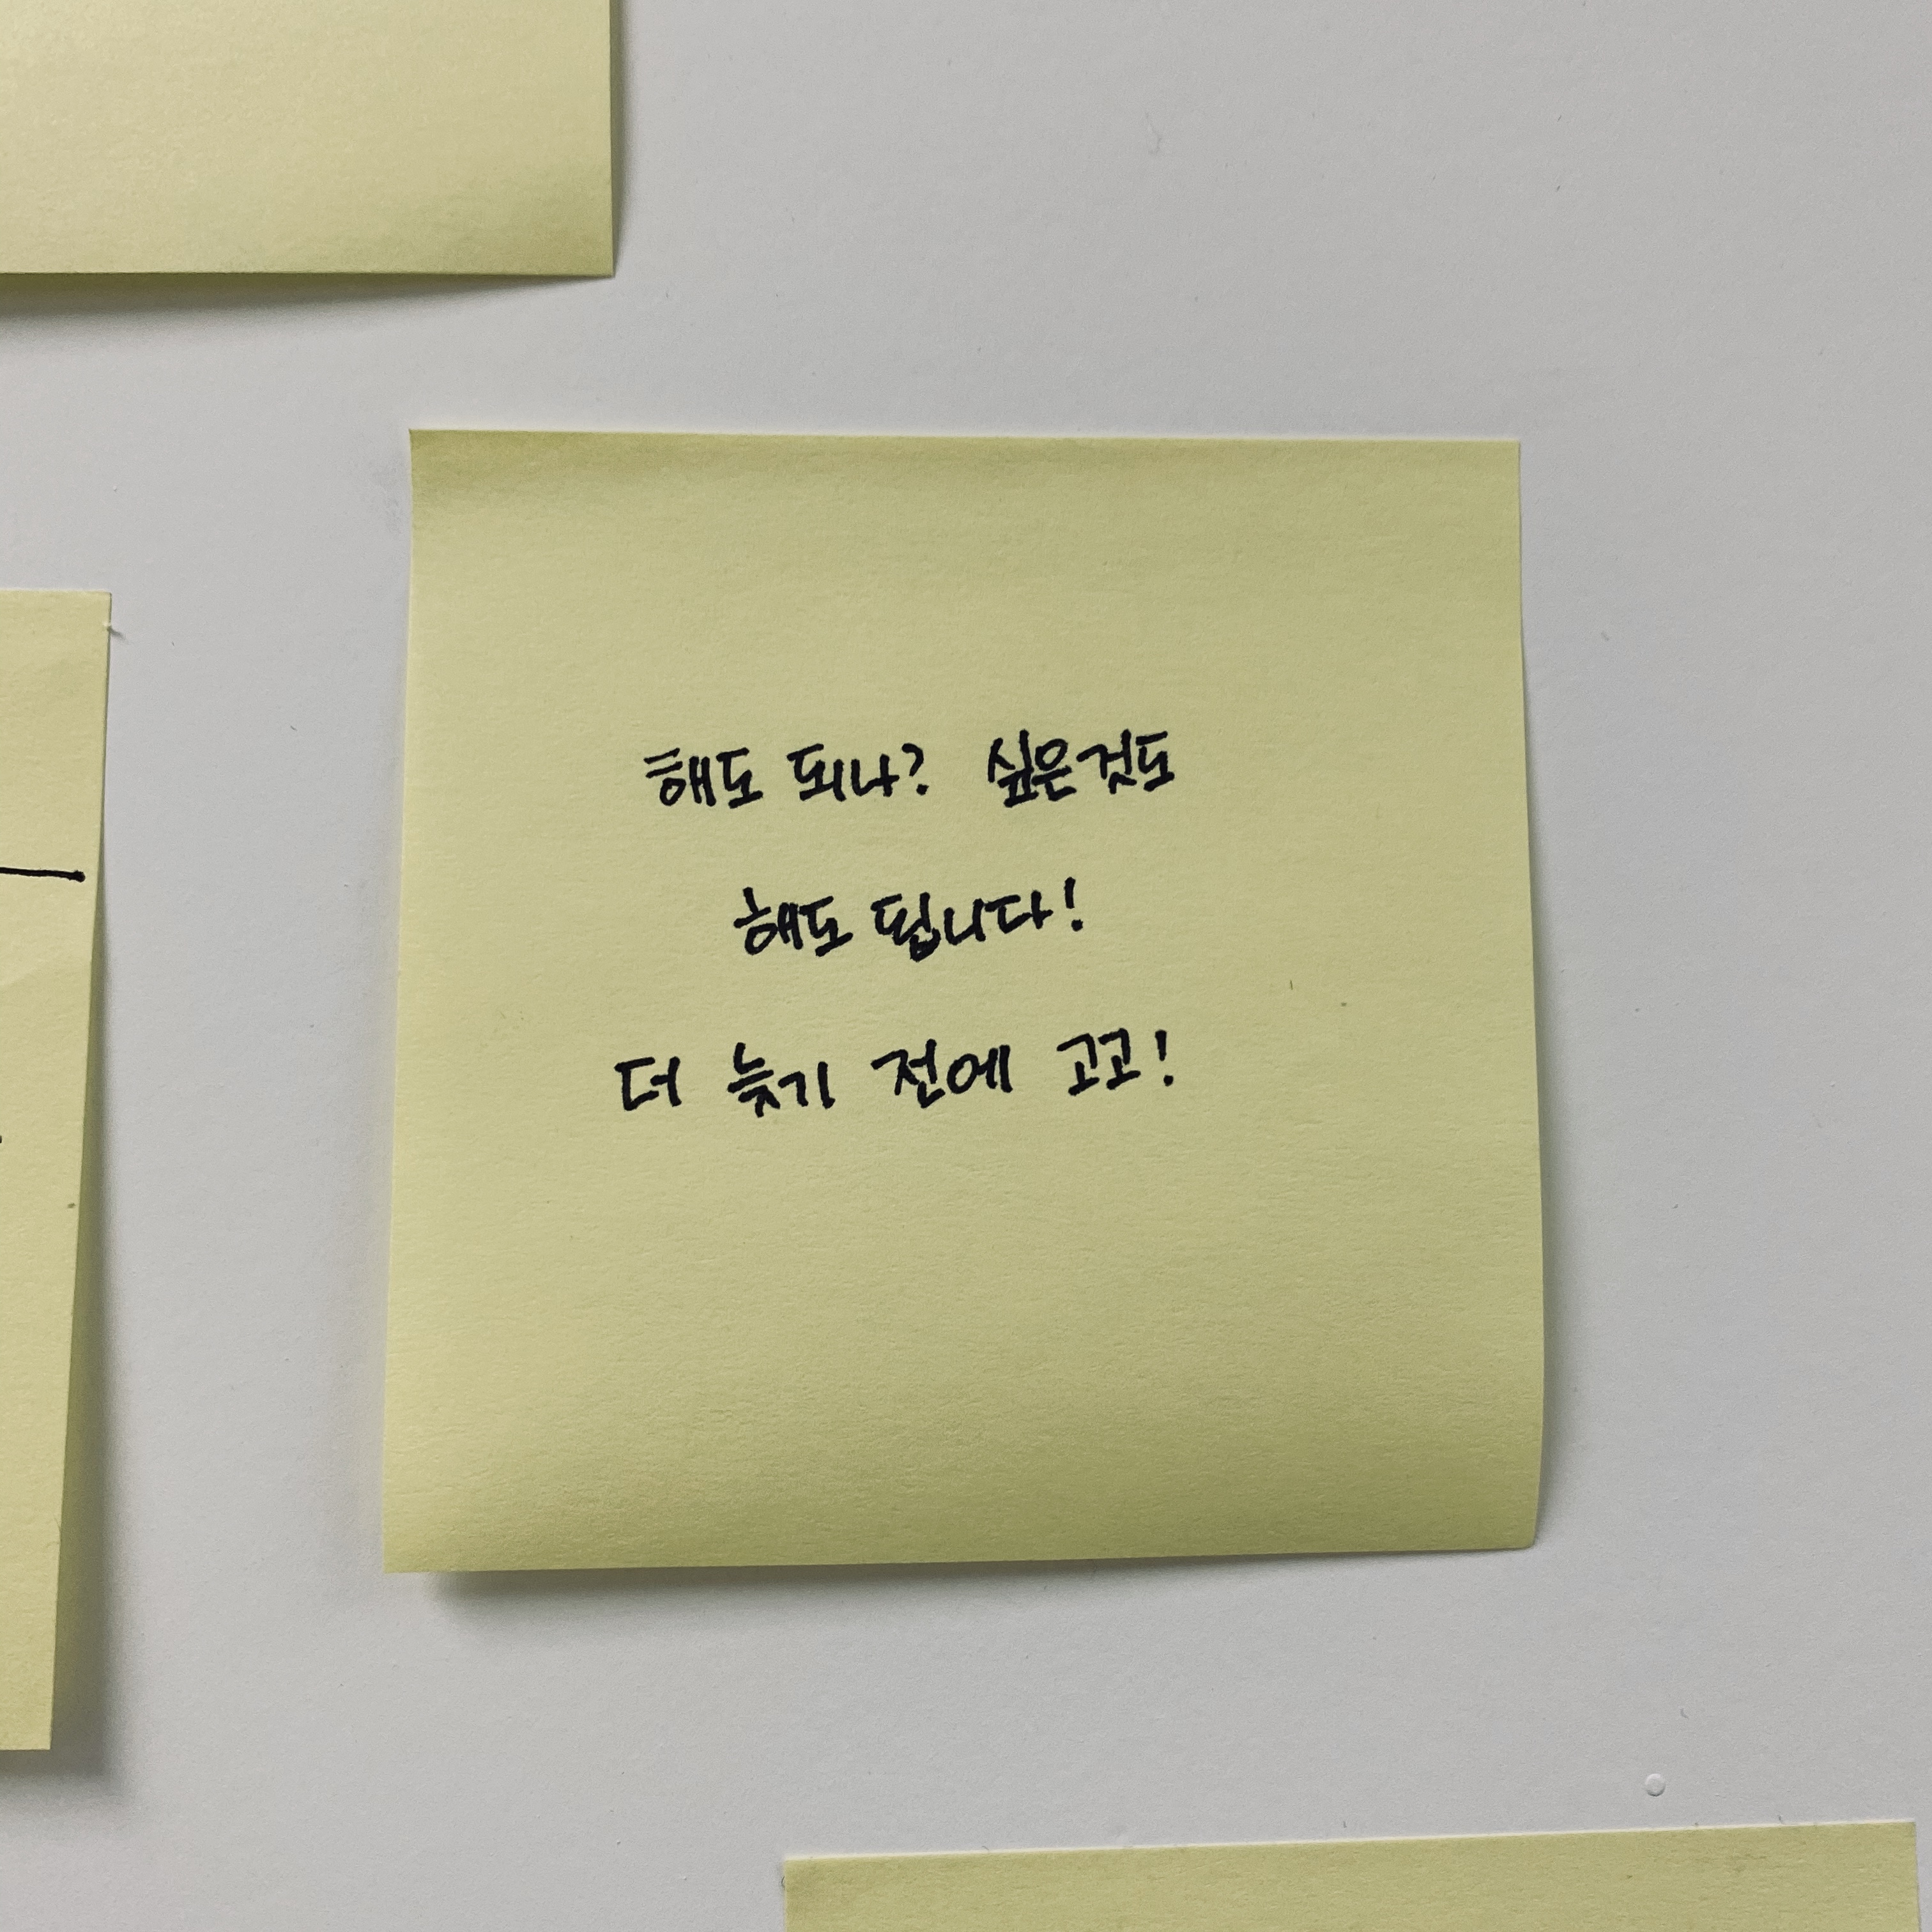 해도 되나? 싶은것도
해도 됩니다!
더 늦기 전에 고고!